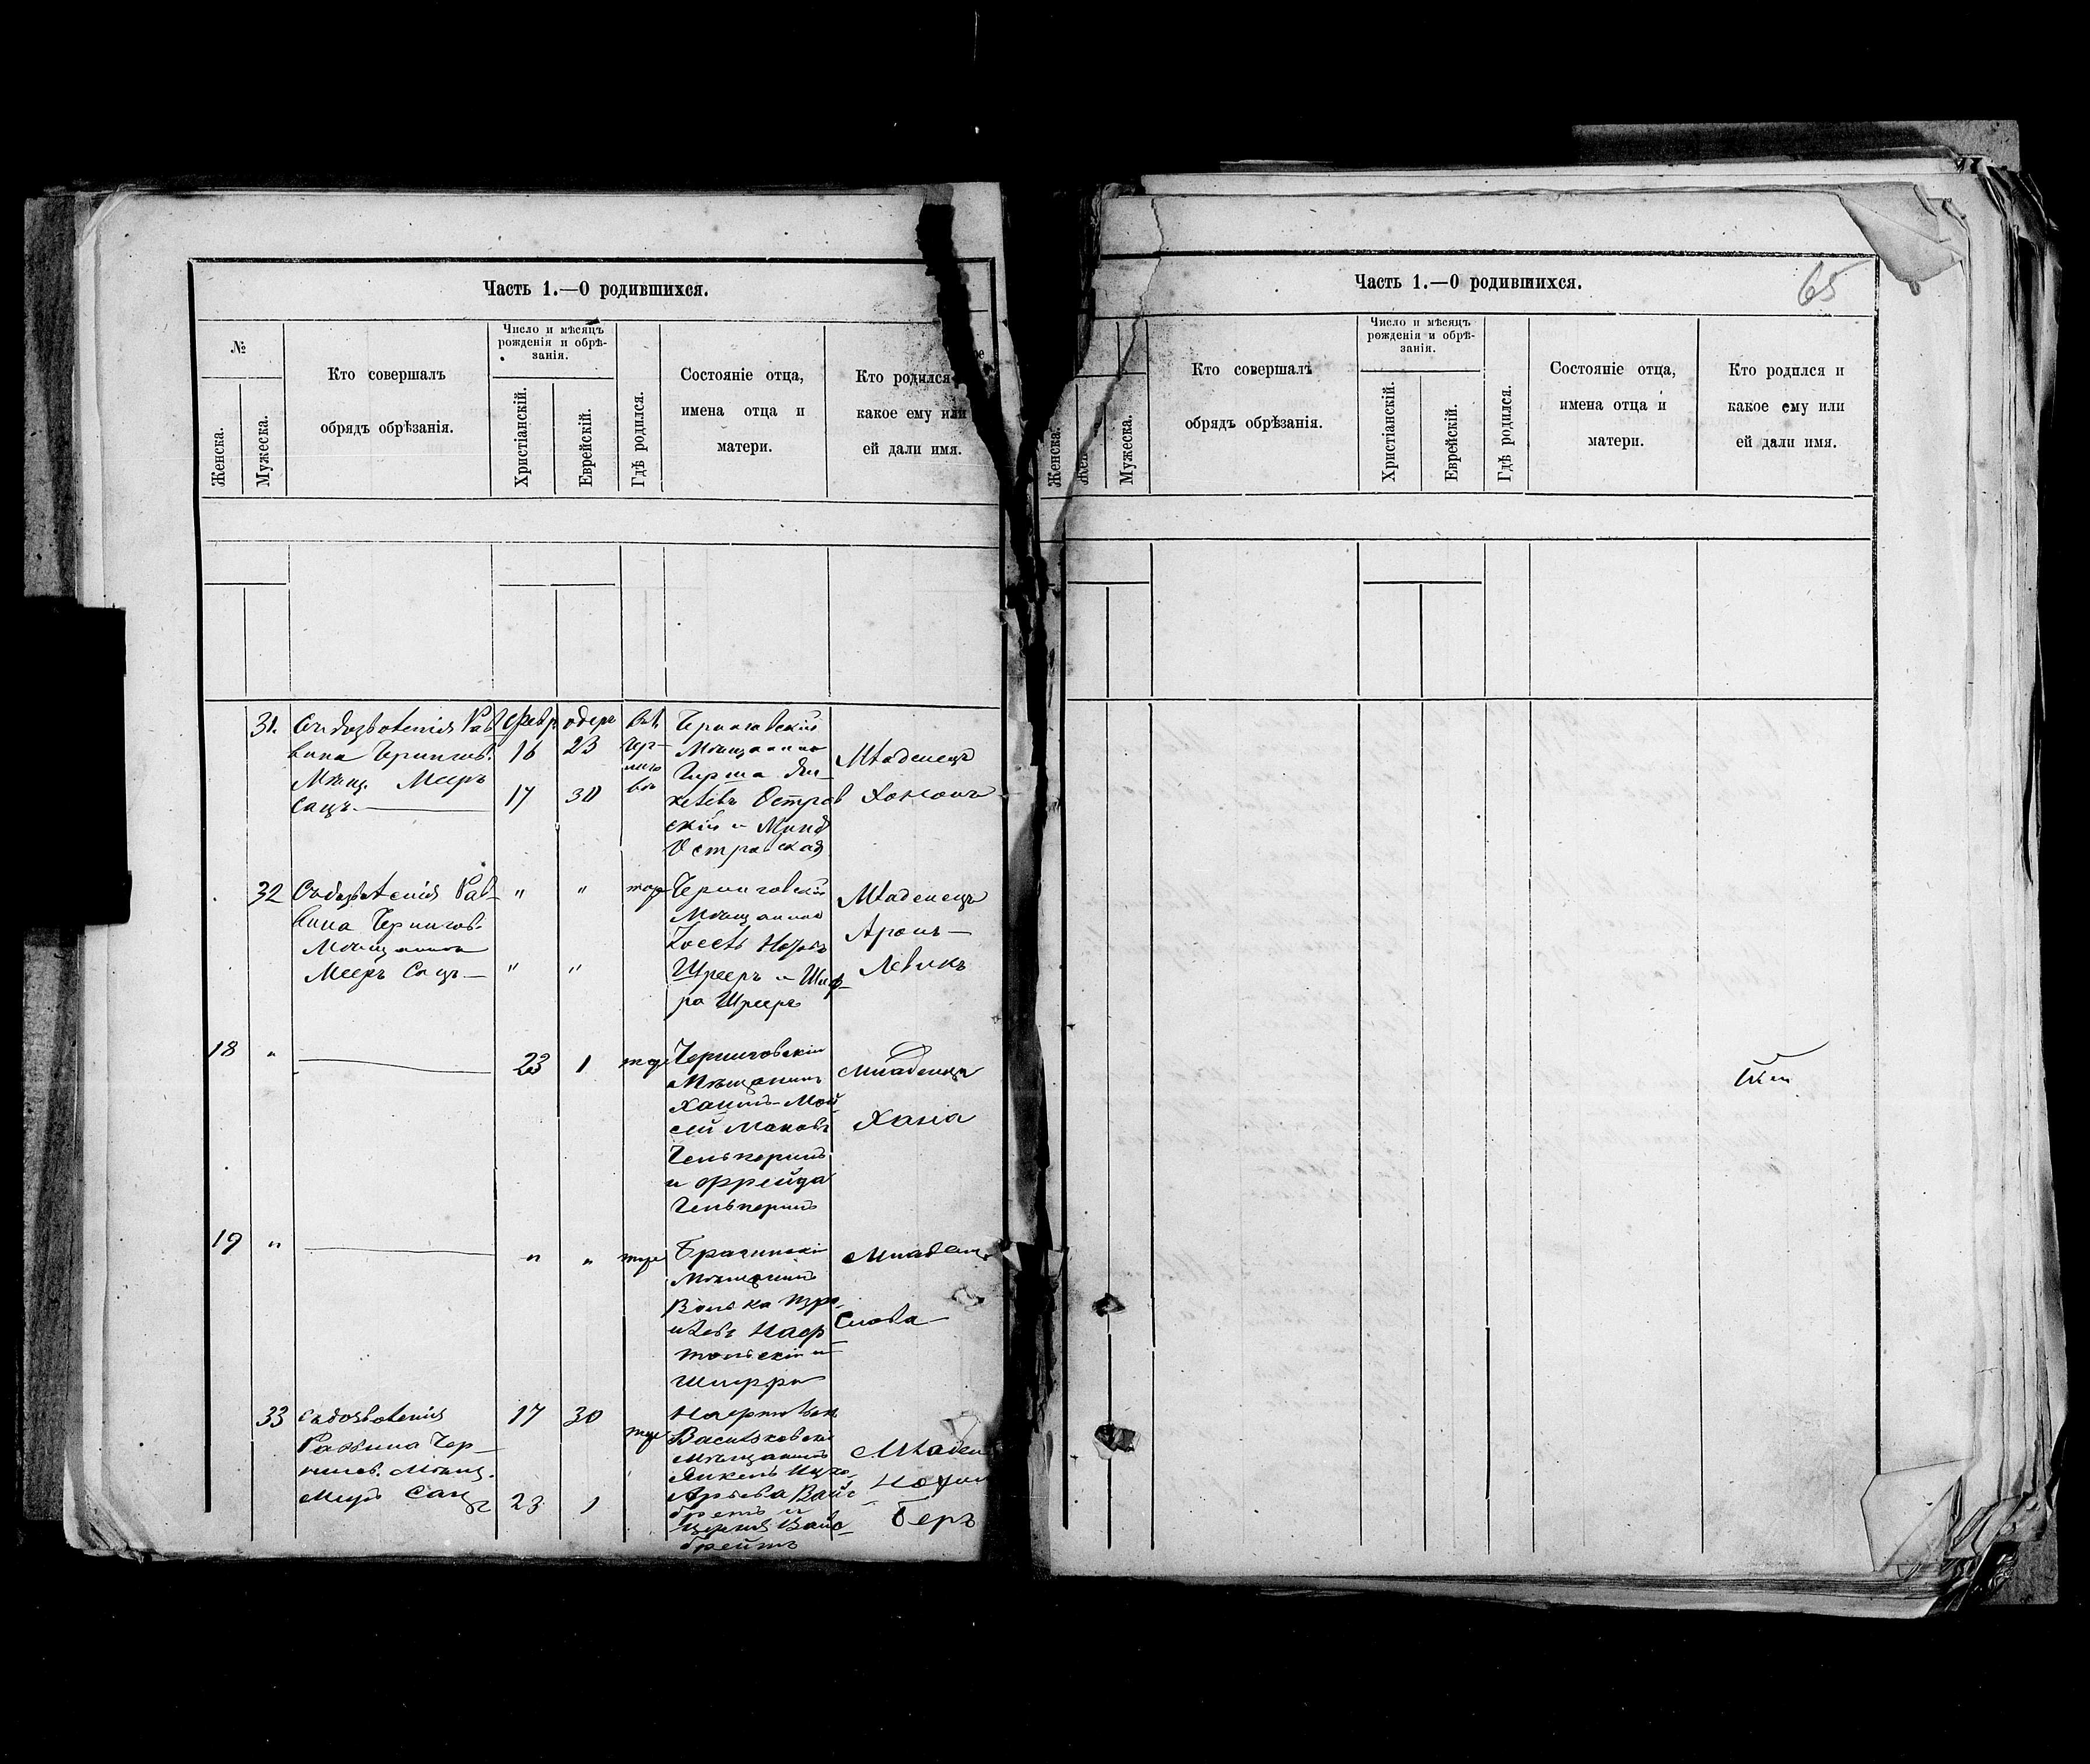 Часть 1.—О родившихся.
№
Женска.
Мужеска.
Кто совершалъ
обрядъ обрѣзанія.
Число и мѣсяцъ
рожденія и обрѣ-
занія.
Христіанскій.
Еврейскій.
Гдѣ родился.
Состояніе отца,
имена отца и
матери.
Кто родился
какое ему или
ей дали имя.
31.
Съ дозволенія Рав
вина Чернигов.
Мѣщ. Мееръ
Сацъ
Февр
16
17
адаръ
23
30
Черниговскій
Мѣщанинъ
Гирша
Остров
скій и
Островская
Младенецъ
Хононъ
32
Съ дозволенія Рав-
вина Чернигов.
Мѣщанинъ
Мееръ Сацъ
"
"
"
"
тоже
Черниговскій
Мѣщанинъ
Шрееръ и Шиф-
ра Шрееръ
Младенецъ
Аронъ-
Левикъ
18
"
23
1
тоже
Черниговскій
Мѣщанинъ
Хаимъ-Мой
сей
Гельперинъ
и Фрейда
Гельперинъ
Младенецъ
Хана
19
"
"
"
тоже
Брагинскій
Мѣщанинъ
Волька Изра-
илевъ
и
Шифра
Младенецъ
Слова
33
съ дозволенія
Раввина Чер-
нигов. Мѣщ.
Мееръ Сацъ
17
30
23
1
тоже
Васильковскій
мѣщанинъ
Янкель Ицко-
Арьева Вайс
бретъ и
Вайс-
брейтъ
Младен
Нохим
Беръ
Часть 1.—О родившихся.
65
Женска.
Мужеска.
Кто совершалъ
обрядъ обрѣзанія.
Число и мѣсяцъ
рожденія и обрѣ-
занія.
Христіанскій.
Еврейскій.
Гдѣ родился.
Состояніе отца,
имена отца и
матери.
Кто родился и
какое ему или
ей дали имя.